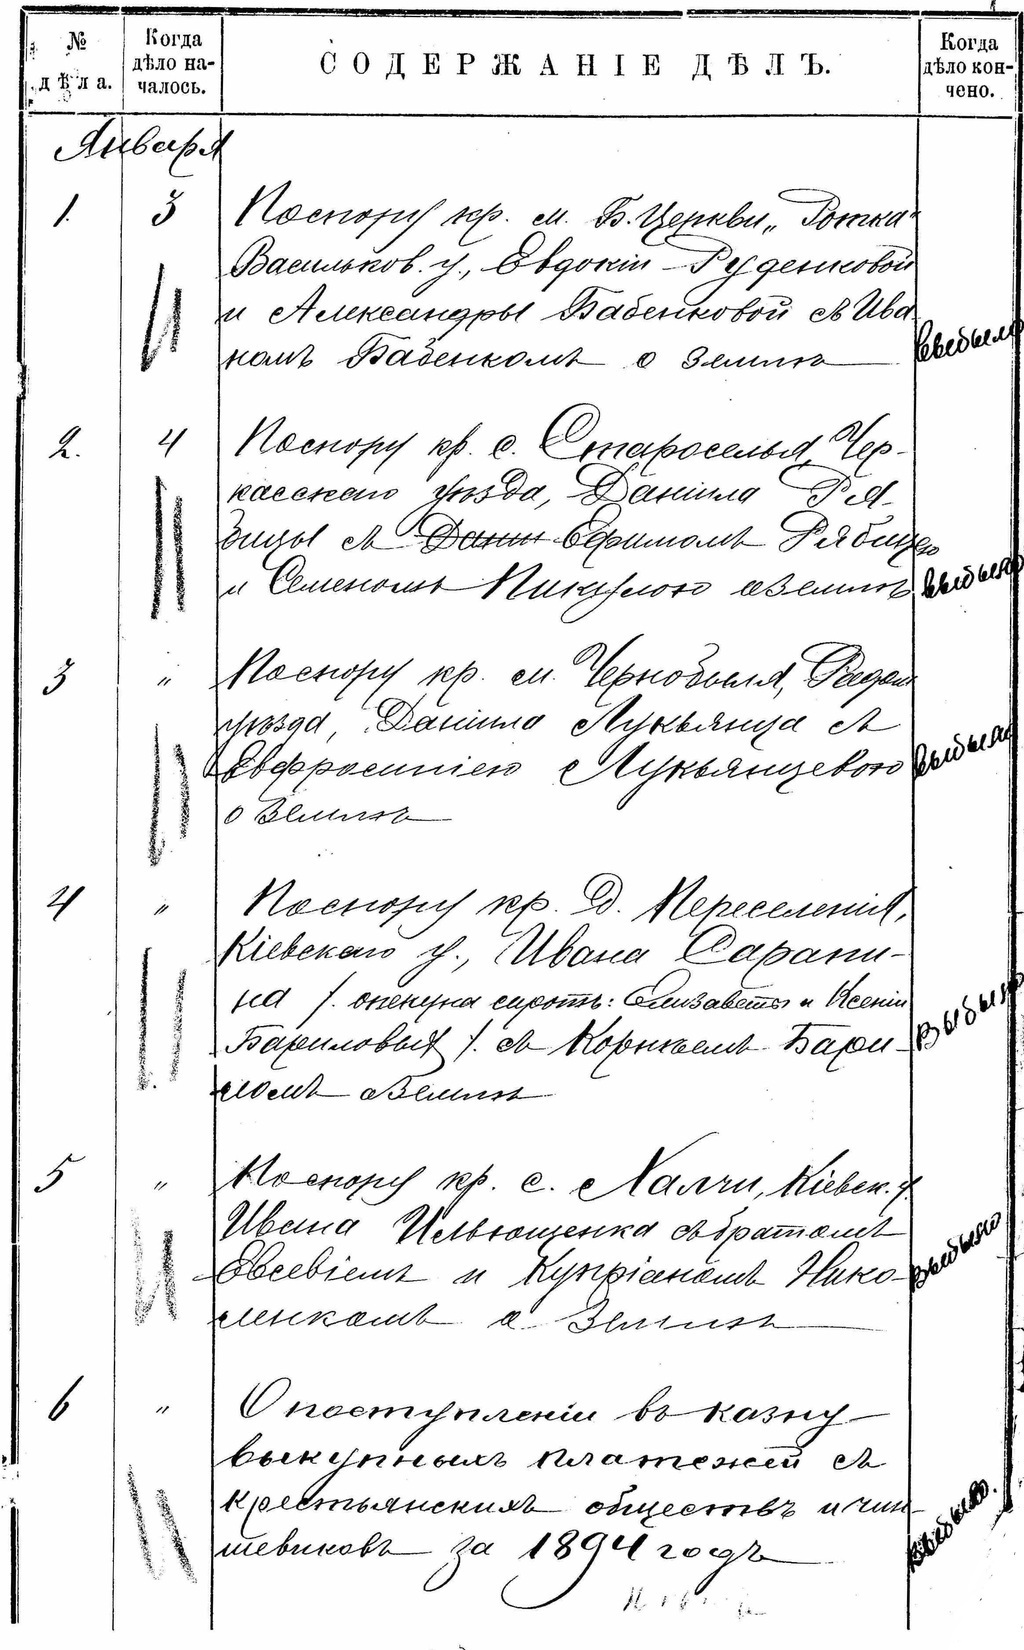 № дѣла.
Когда дѣло на-
чалось.
СОДЕРЖАНІЕ ДѢЛЪ.
Когда
дѣло кон-
чено.
Января
1. 3 По спору кр. м. Б. Церкви „Ротка“
Васильков. у., Евдокіи Руденковой
и Александры Бабенковой съ Ива
номъ Бабенкомъ о землѣ Выбыло
2. 4 По спору кр. с. Староселья, Чер-
касскаго уѣзда, Даніила Ря-
бицы съ Дани Ефимомъ Рябицею
и Семеномъ Пикулою о землѣ Выбыло
3 „ По спору кр. м. Чернобыля, Радом
уѣзда, Даніила Лукьянца съ
Евфросиніею Лукьянцевою Выбыло
о землѣ
4 „ По спору кр. д. Переселенія,
Кіевскаго у., Ивана Сарапи-
на /. опекуна сиротъ: Елизаветы и Ксеніи
Бариловыхъ /. съ Корнѣемъ Бари- Выбыло
ломъ о землѣ
5 „ По спору кр. с. Халчи, Кіевск. у
Ивана Ильющенка съ братомъ
Евсевіемъ и Купріаномъ Нико- Выбыло
ленкомъ о землѣ
6 „ О поступленіи въ казну
выкупныхъ платежей съ
крестьянскихъ обществъ и чин-
шевиковъ за 1894 годъ Выбыло.